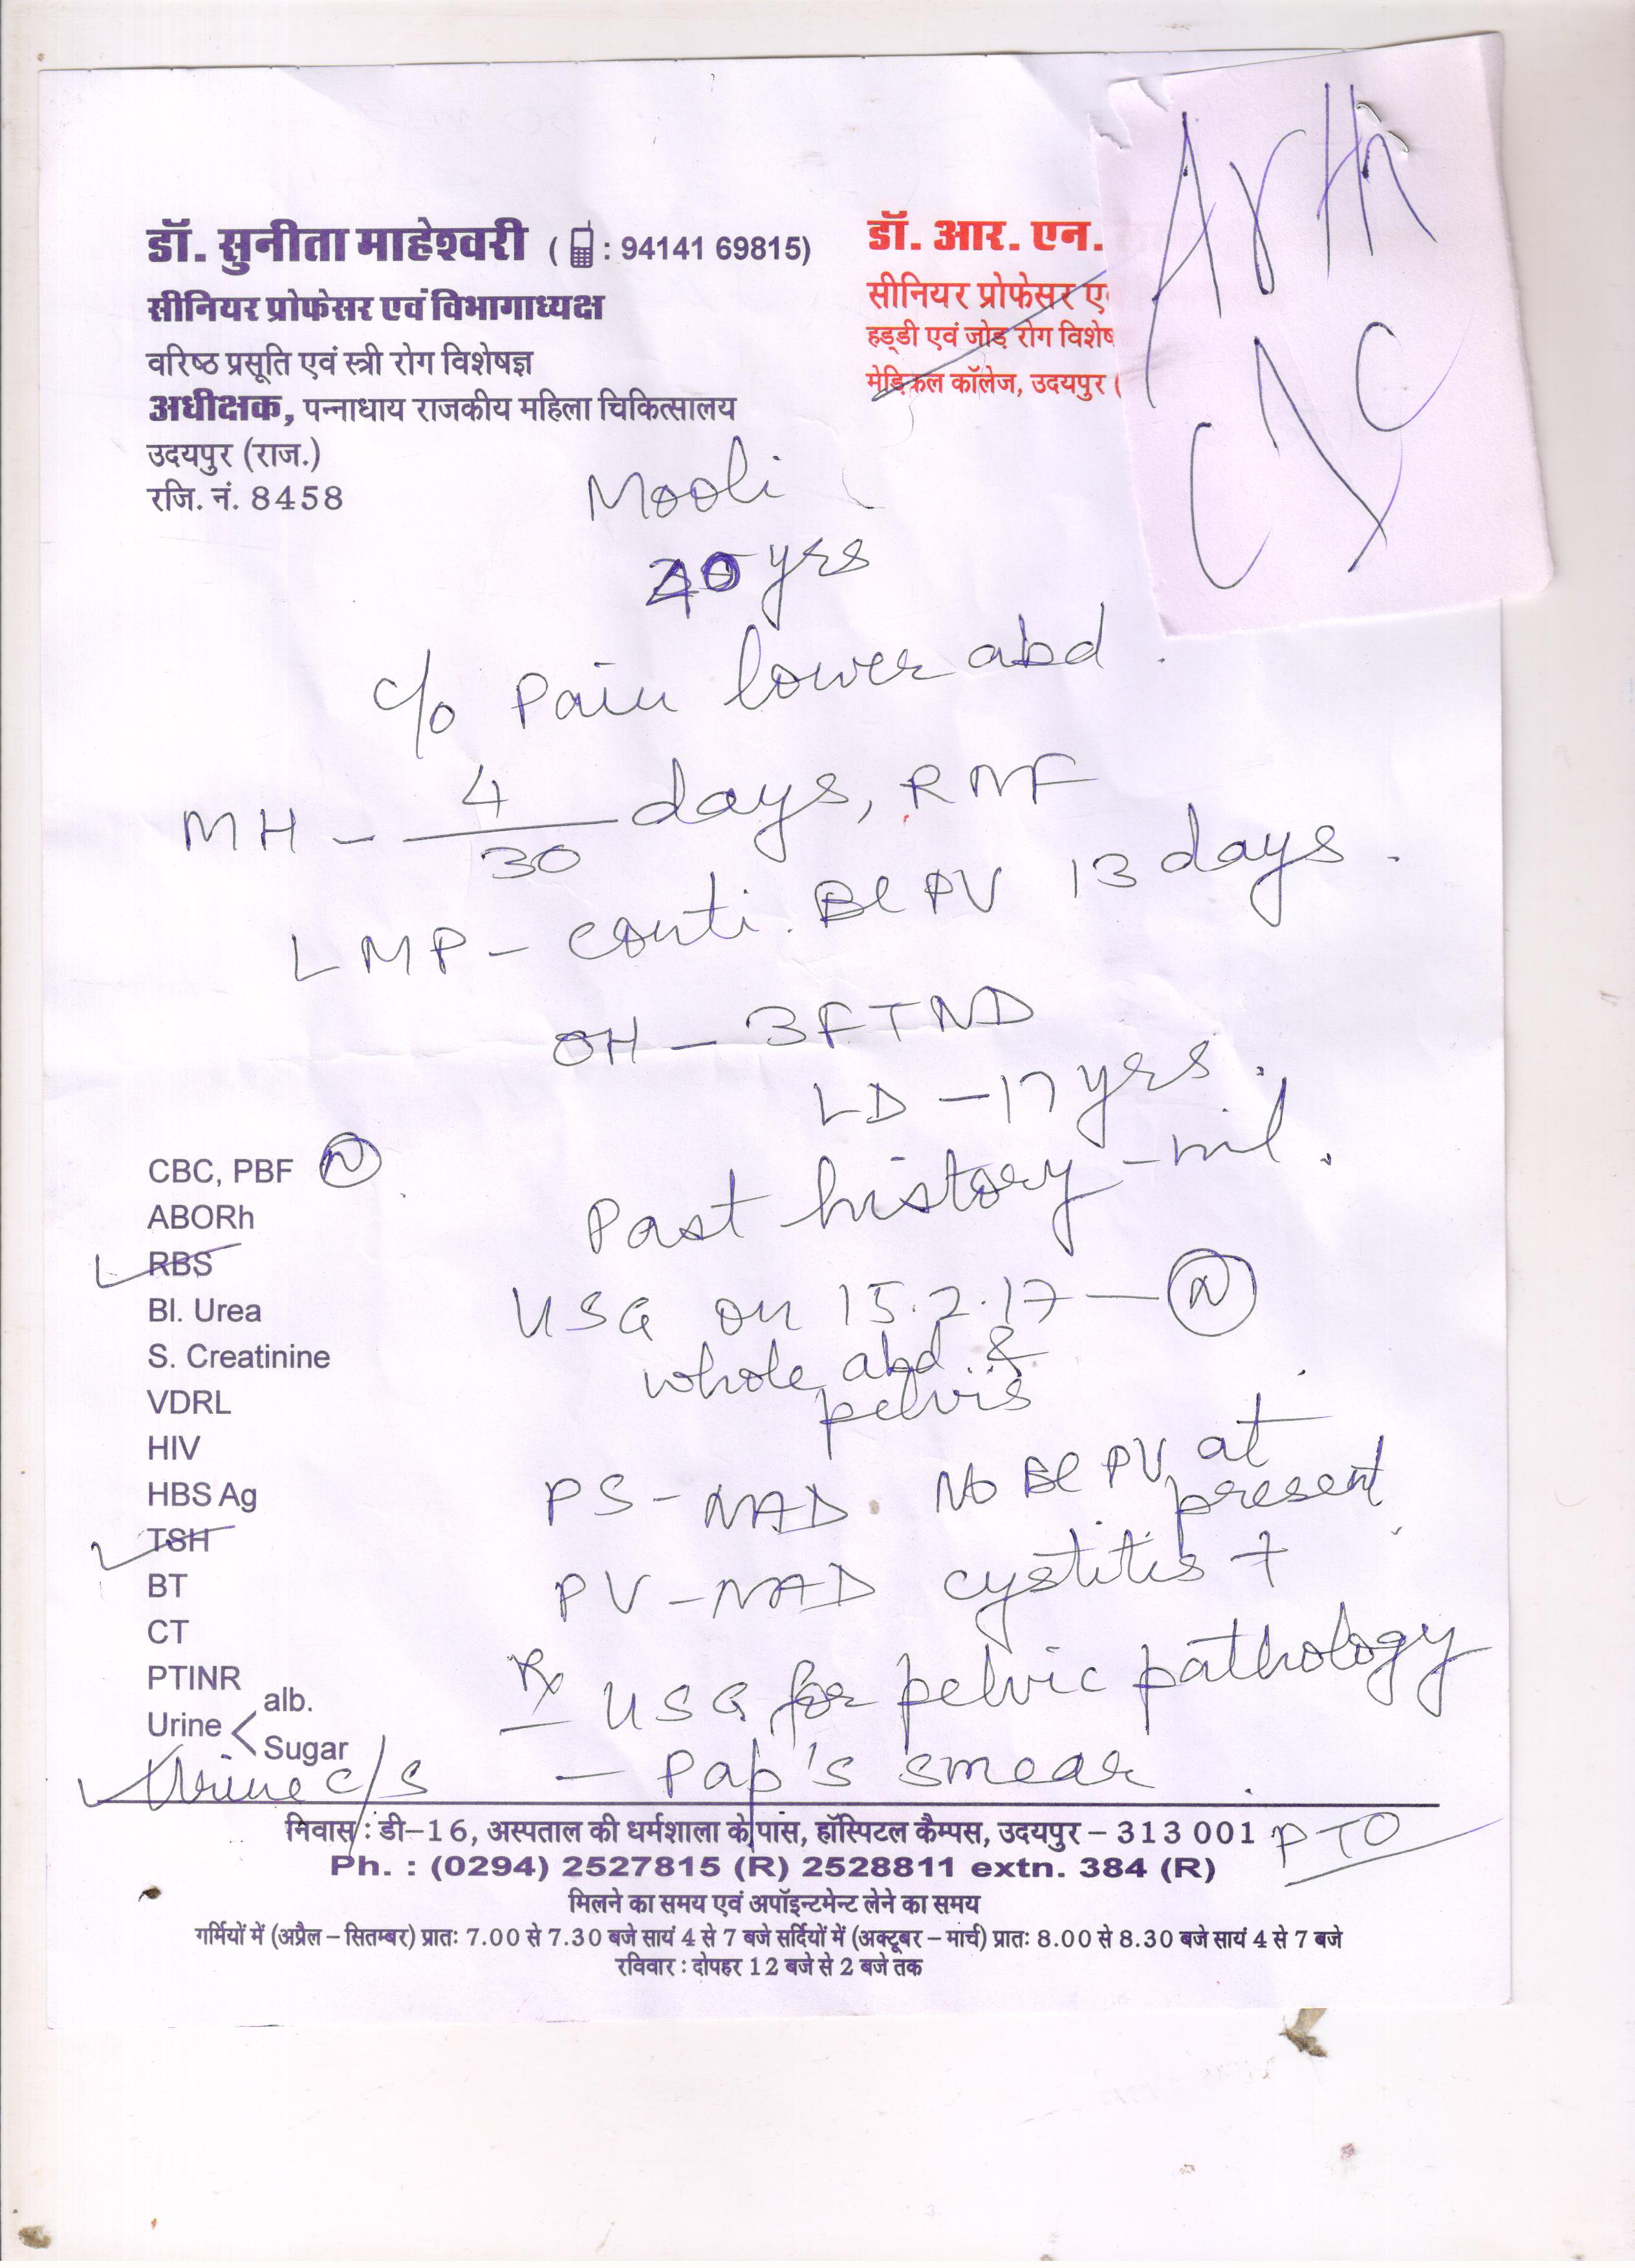 डॉ. सुनीता माहेश्वरी ( : 94141 69815)
सीनियर प्रोफेसर एवं विभागाध्यक्ष
वरिष्ठ प्रसूति एवं स्त्री रोग विशेषज्ञ
अधीक्षक, पन्नाधाय राजकीय महिला चिकित्सालय
उदयपुर (राज.)
रजि. नं. 8458
डॉ. आर. एन.
सीनियर प्रोफेसर
हड्डी एवं जोड़ रोग
मेडिकल कॉलेज, उदयपुर (
Arth
Mooli
yrs
c/o Pain lower abd.
MH - 4/30 days, RMF
LMP - conti. Bl PV 13 days.
OH - 3FTND
LD - 17 yrs.
Past history - nil.
USG on 15.2.17 - (N)
whole abd. &
pelvis
PS - NAD. No Bl PV at
present
PV - NAD cystitis +
Rx USG for pelvic pathology
- Pap's smear
CBC, PBF (N)
ABORh
✓ RBS
Bl. Urea
S. Creatinine
VDRL
HIV
HBS Ag
✓ TSH
BT
CT
PTINR
Urine < alb.
Sugar
✓ Urine c/s
निवास : डी–16, अस्पताल की धर्मशाला के पास, हॉस्पिटल कैम्पस, उदयपुर – 313 001
PTO
Ph. : (0294) 2527815 (R) 2528811 extn. 384 (R)
मिलने का समय एवं अपॉइन्टमेन्ट लेने का समय
गर्मियों में (अप्रैल – सितम्बर) प्रातः 7.00 से 7.30 बजे सायं 4 से 7 बजे सर्दियों में (अक्टूबर – मार्च) प्रातः 8.00 से 8.30 बजे सायं 4 से 7 बजे
रविवार : दोपहर 12 बजे से 2 बजे तक